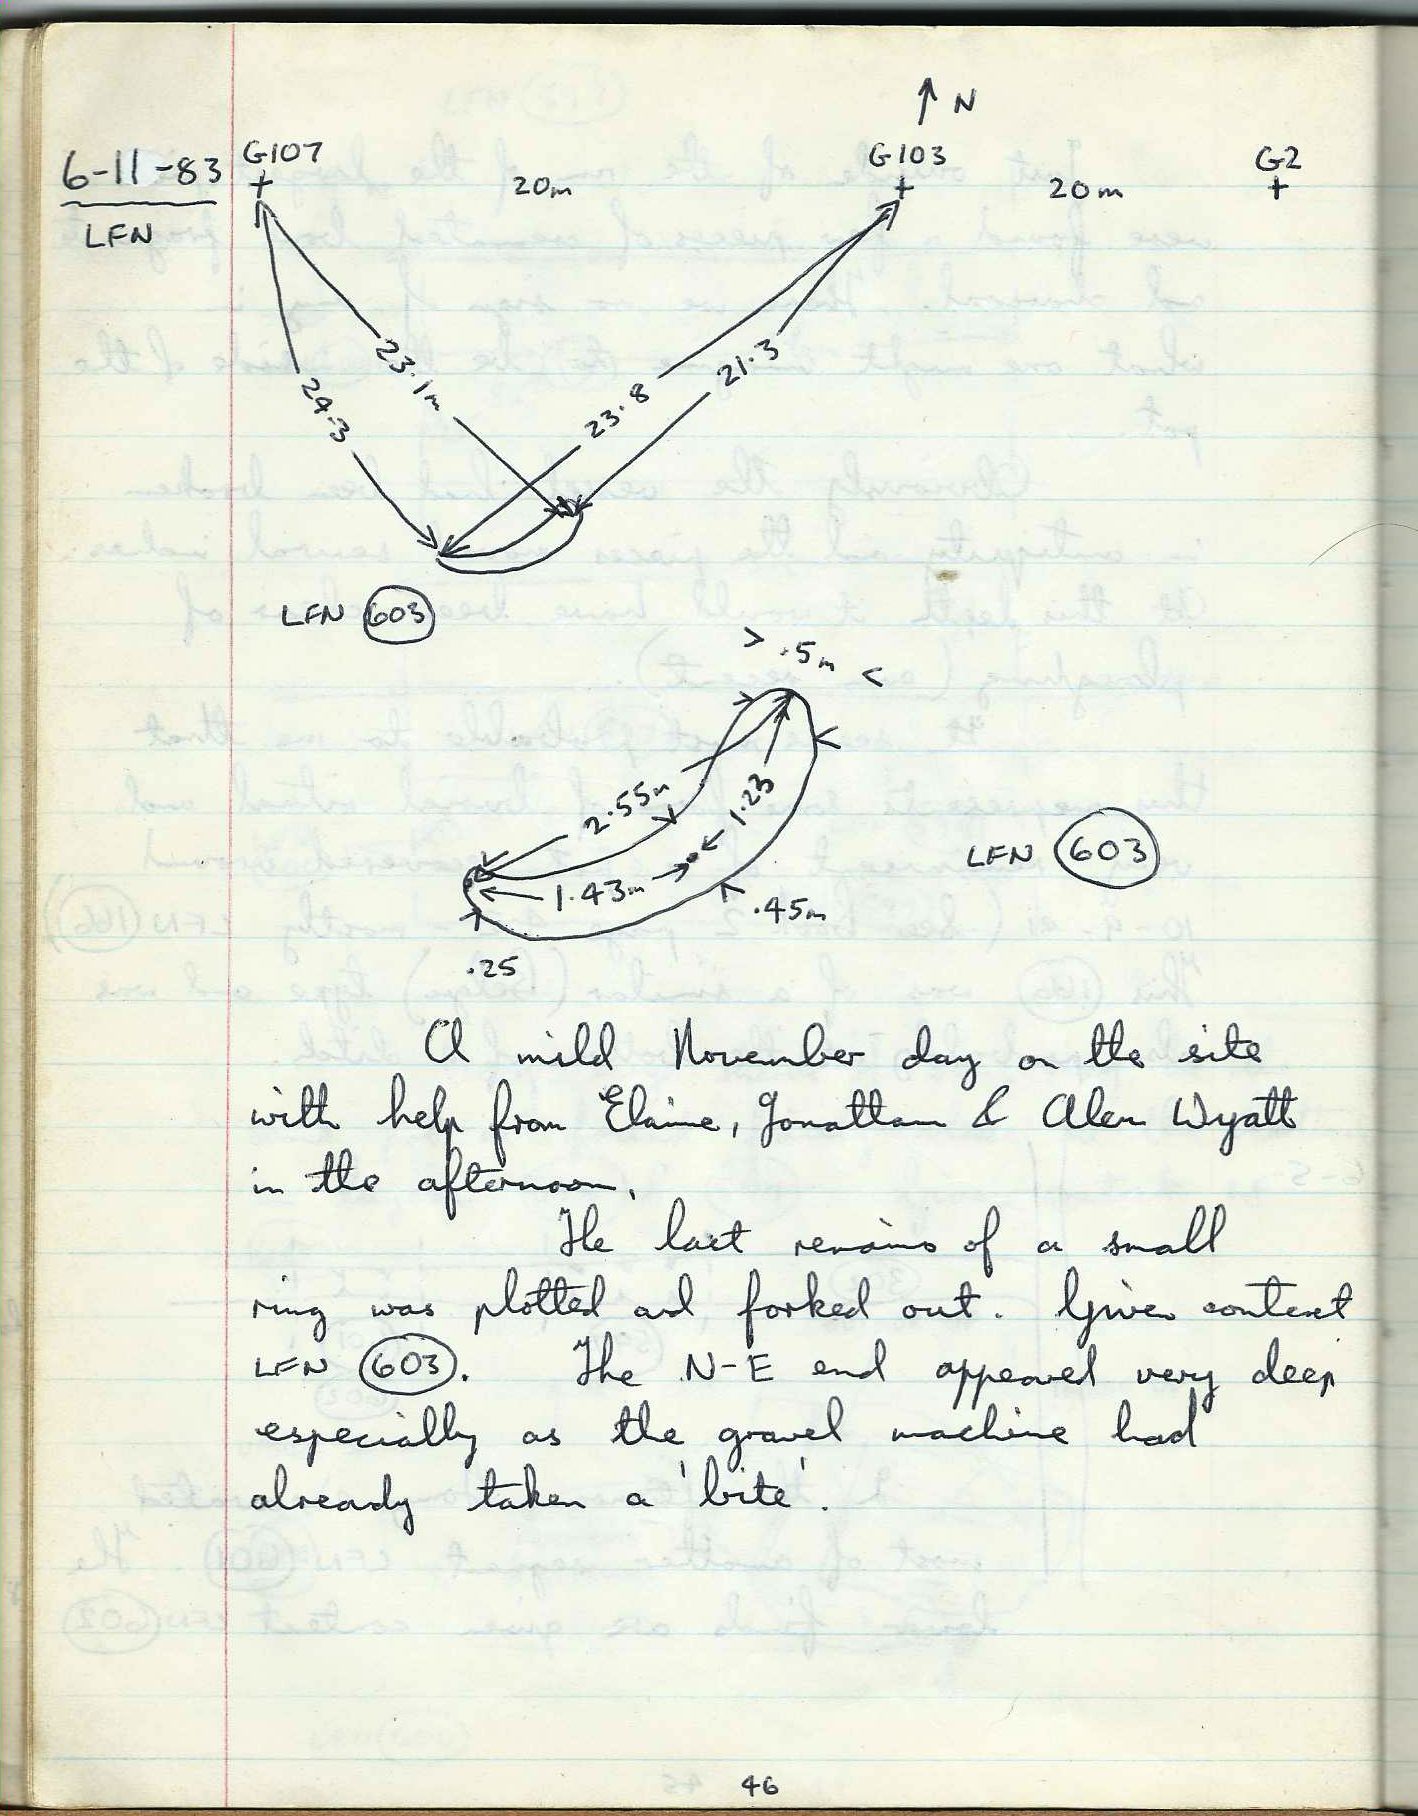 ↑ N
6-11-83
LFN
G107
G103
G2
+ 20m + 20m +
23.1m
24.3
23.8
21.3
LFN 603
> .5m <
2.55m
1.23
1.43m
.45m
.25
LFN 603
A mild November day on the site
with help from Elaine, Jonathan & Alen Wyatt
in the afternoon.
The last remains of a small
ring was plotted and forked out. Given context
LFN 603. The N-E end appeared very deep
especially as the gravel machine had
already taken a 'bite'.
46